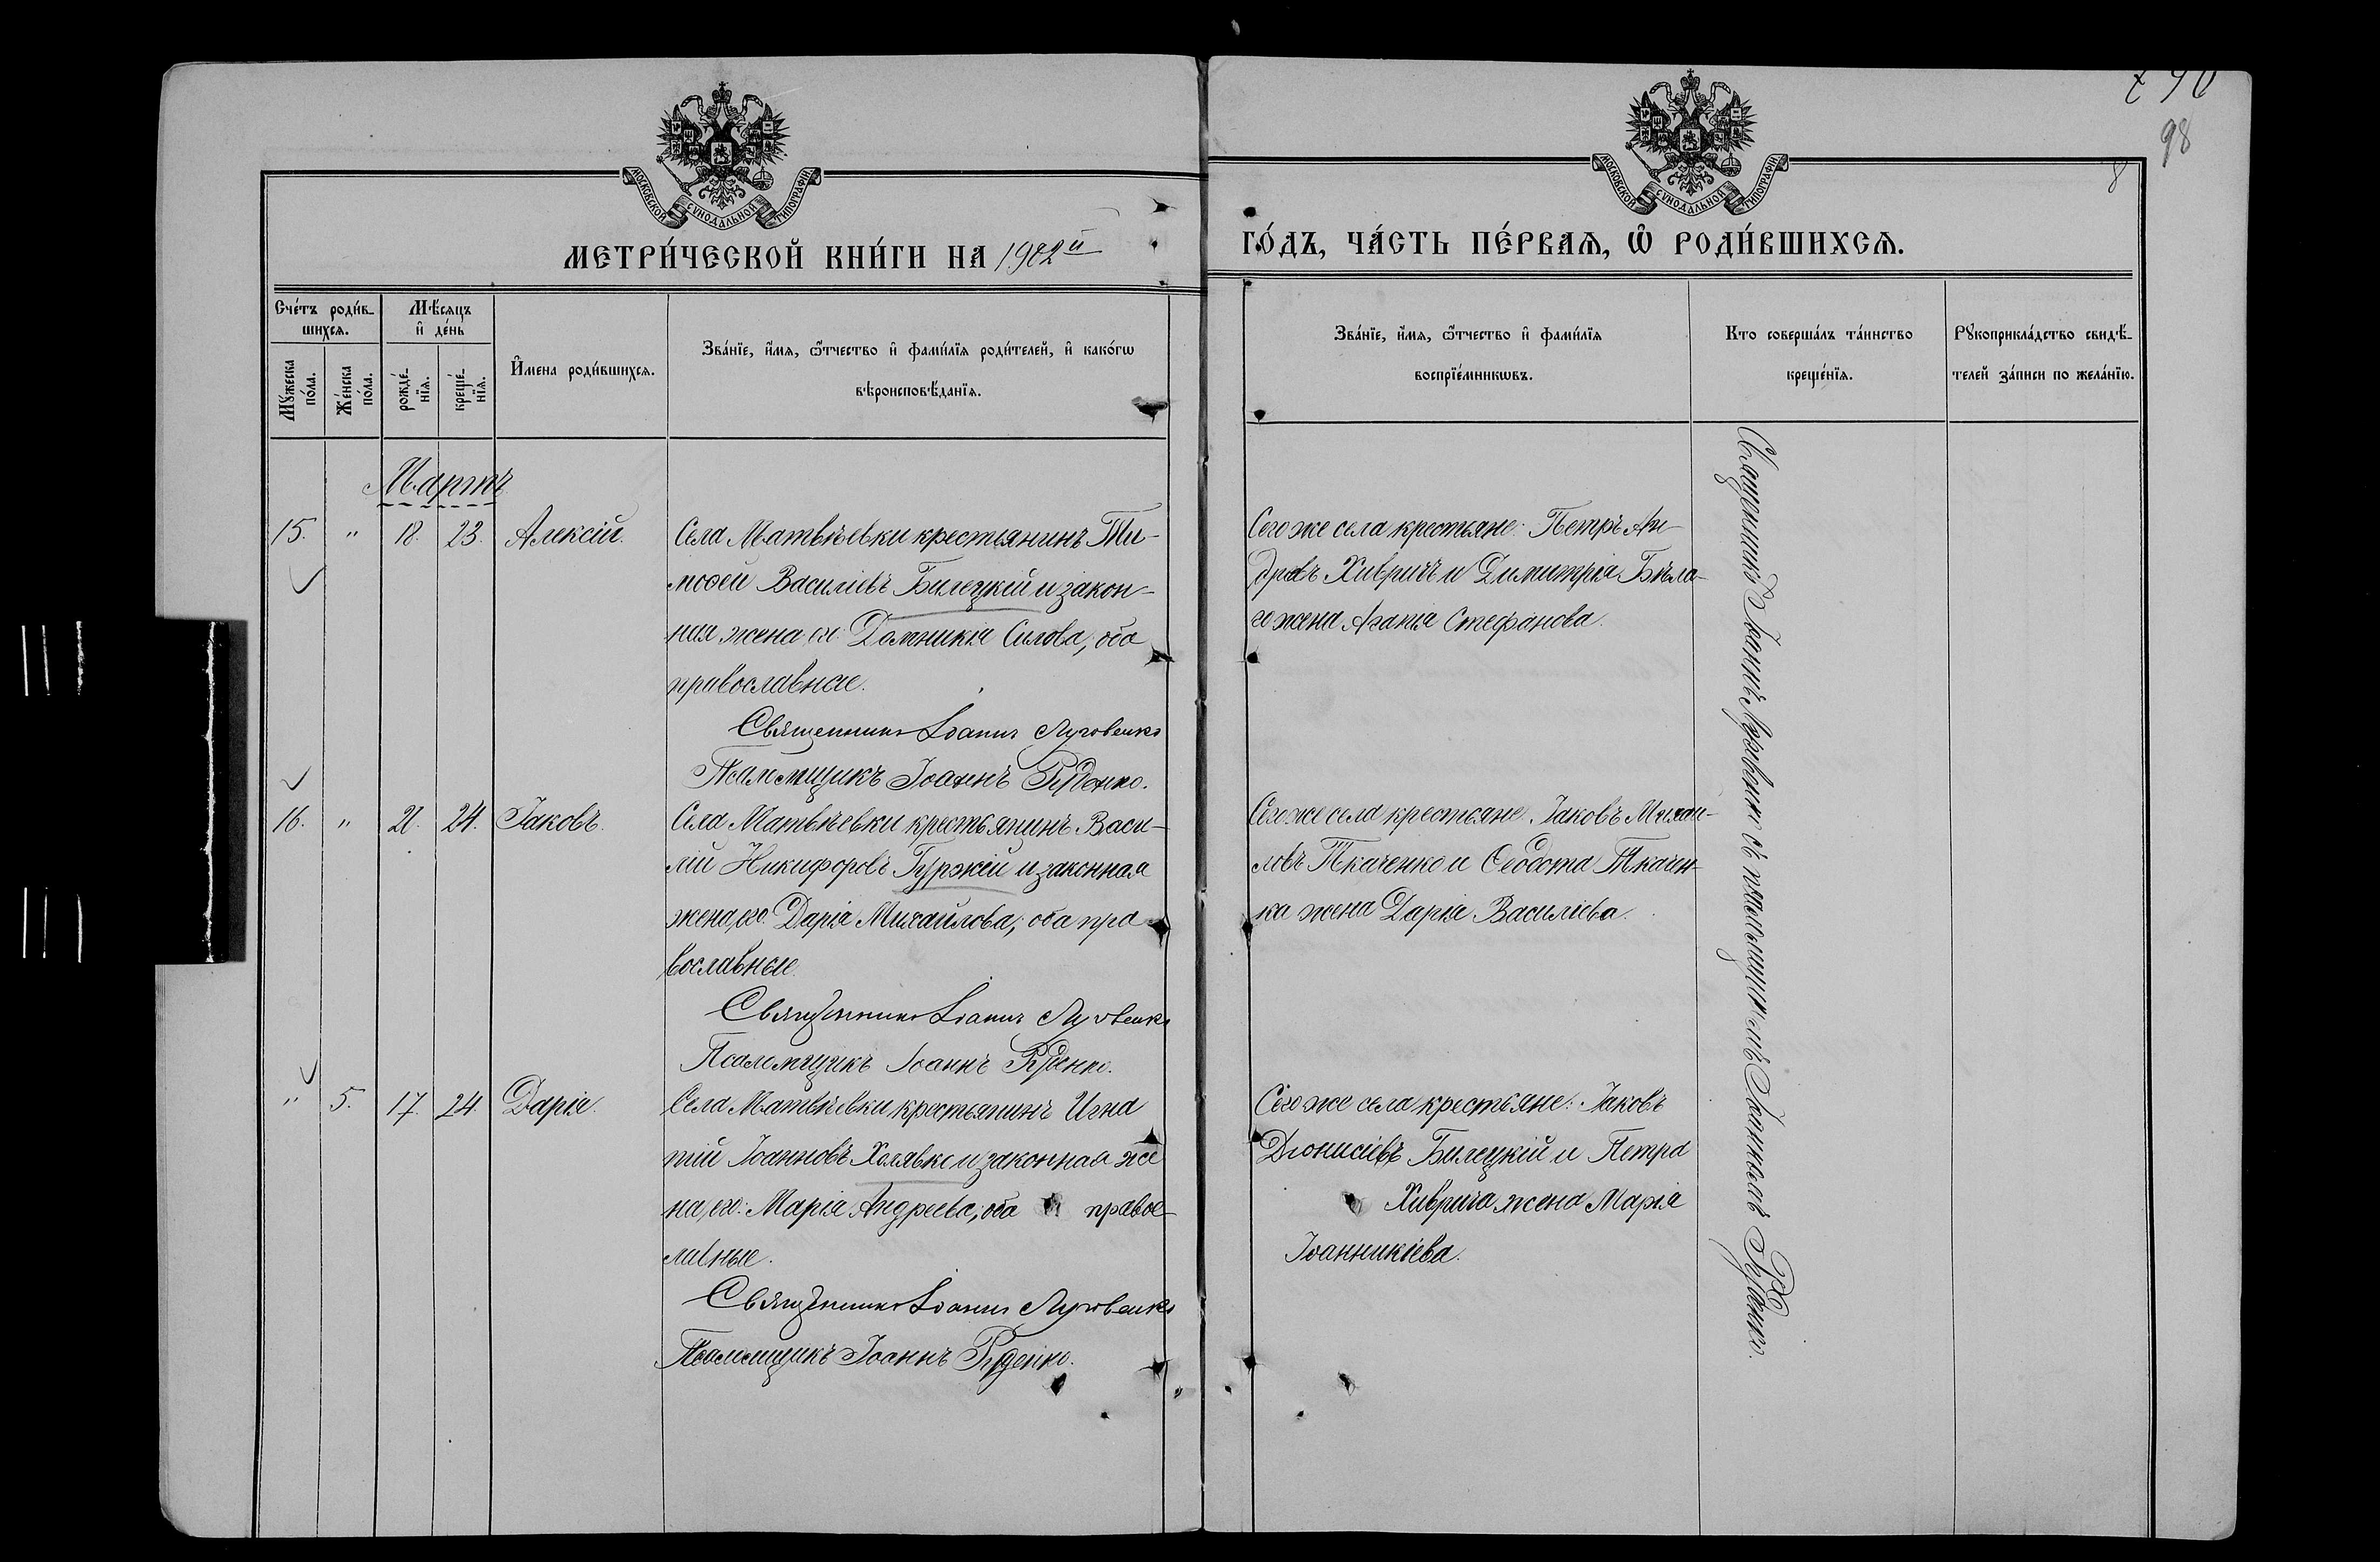 98
8
МОСКОВСКОЙ СУНОДАЛЬНОЙ ТИПОГРАФІИ
МОСКОВСКОЙ СУНОДАЛЬНОЙ ТИПОГРАФІИ
МЕТРИ́ЧЕСКОЙ КНИ́ГИ НА 1902й
ГО́ДЪ, ЧА́СТЬ ПЕ́РВАЯ, Ѡ РОДИ́ВШИХСЯ.
Сче́тъ роди́в-
шихся.
Мꙋ́жеска
по́ла.
Же́нска
по́ла.
Мѣ́сяцъ
и҆ де́нь
рожде́-
нїя.
креще́-
нїя.
И҆мена роди́вшихся.
Зва́нїе, и҆́мя, ѻ҆́тчество и҆ фами́лїя роди́телей, и҆ како́гѡ
вѣроисповѣ́данїя.
Зва́нїе, и҆́мя, ѻ҆́тчество и҆ фами́лїя
воспрїе́мникѡвъ.
Кто соверша́лъ та́инство
креще́нїя.
Рꙋкоприкла́дство свидѣ́-
телей за́писи по жела́нїю.
Мартъ
15. " 18. 23. Алексій.
Села Матвѣевки крестьянинъ Ти-
моѳей Василіевъ Билецкій и закон-
ная жена его Домникія Силова, оба
православные.
Священникъ Іоаннъ Луговенко
Псаломщикъ Іоаннъ Руденко.
Сего же села крестьяне: Петръ Ан-
дреевъ Хивричъ и Димитрія Бѣла-
го жена Агапія Стефанова.
16. " 21. 24. Іаковъ.
Села Матвѣевки крестьянинъ Васи-
лій Никифоровъ Гуржій и законная
жена его Дарія Михайлова, оба пра-
вославные.
Священникъ Іоаннъ Луговенко
Псаломщикъ Іоаннъ Руденко.
Сего же села крестьяне: Іаковъ Михай-
ловъ Ткаченко и Ѳеодота Ткачен-
ка жена Дарія Василіева.
" 5. 17. 24. Дарія.
Села Матвѣевки крестьянинъ Игна
тій Іоанновъ Халявко и законная же
на его: Марія Андреева, оба правос-
лавные.
Священникъ Іоаннъ Луговенко
Псаломщикъ Іоаннъ Руденко.
Сего же села крестьяне: Іаковъ
Діонисіевъ Билецкій и Петра
Хиврича жена Марія
Іоанникіева.
Священникъ Іоаннъ Луговенко съ псаломщикомъ Іоанномъ Руденко.